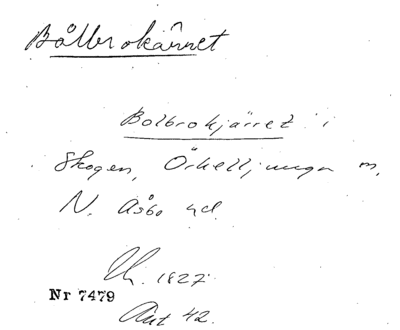 Bålbrokärret
Bolbrokjärret i
Skogen, Örkelljunga m,
N. Åsbo hd.
1827
Nr 7479
Akt 42.